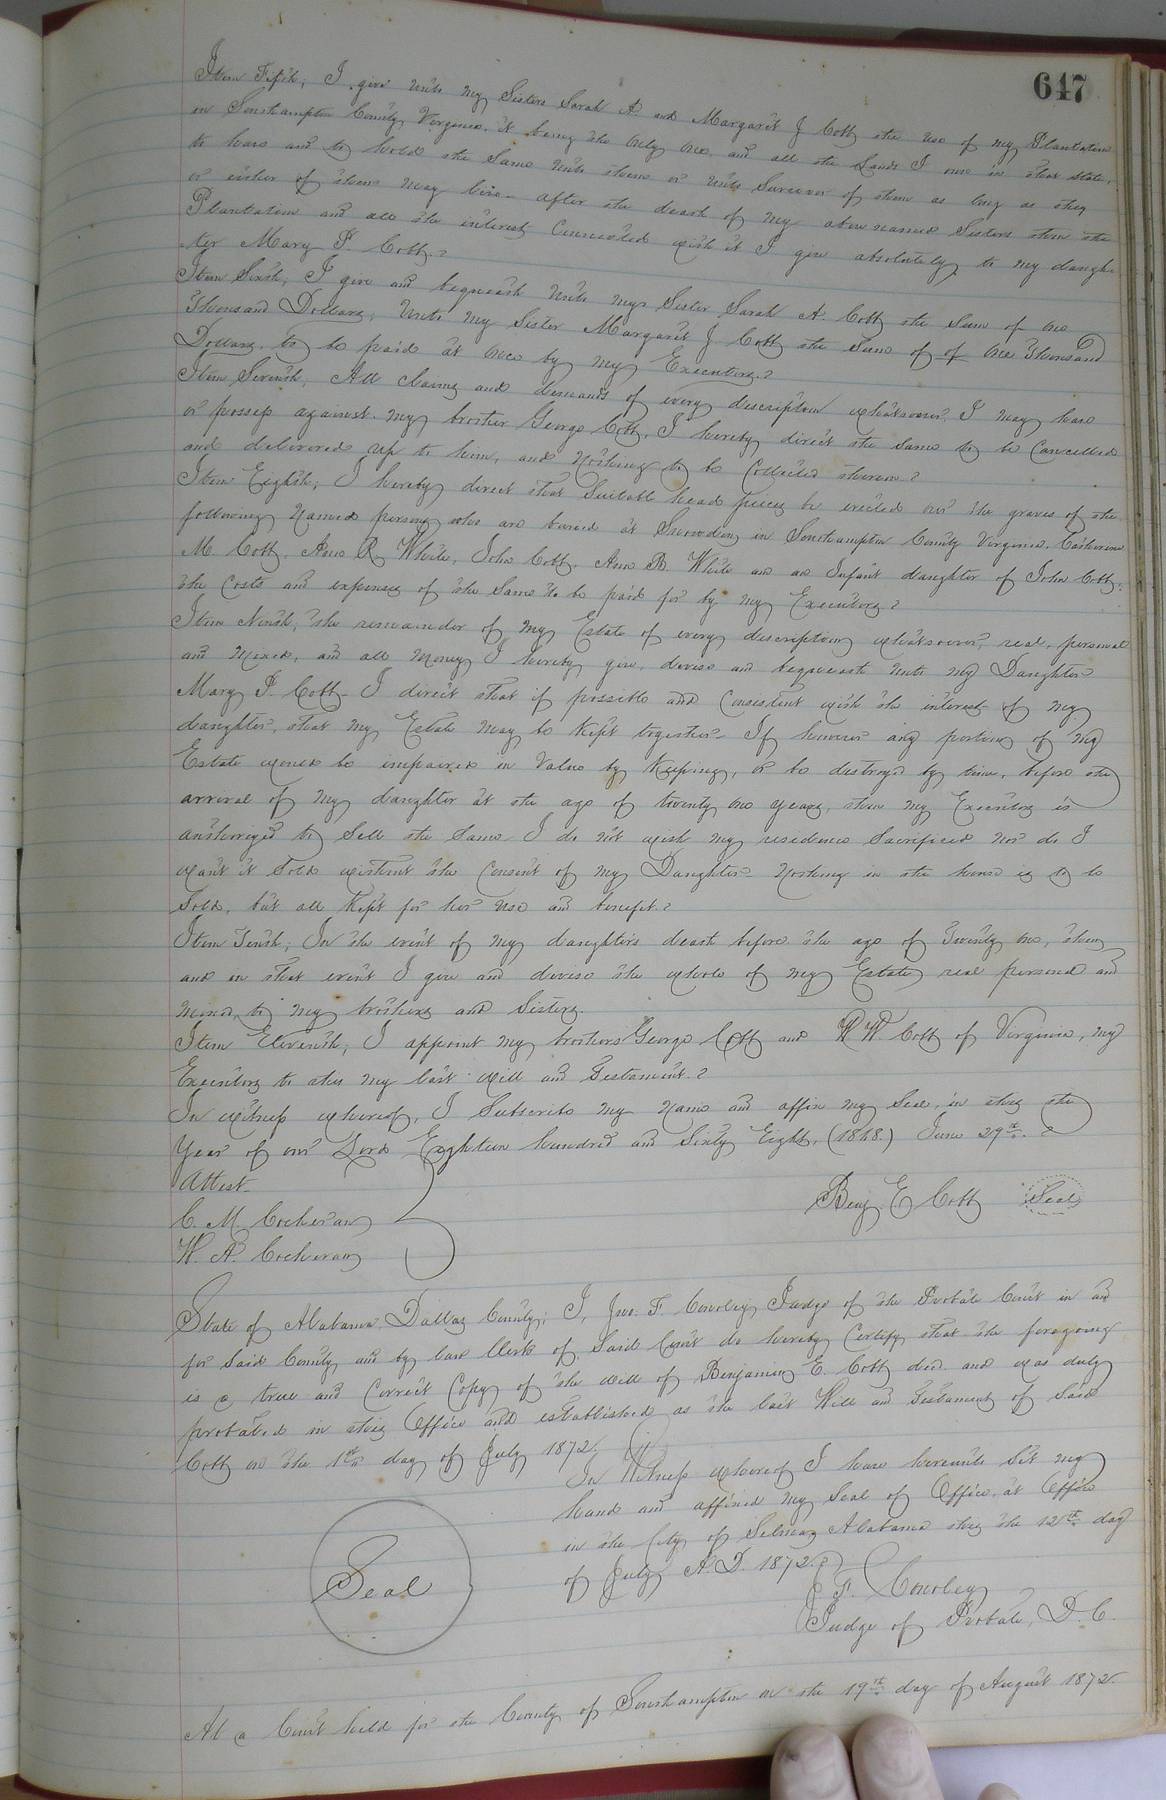 647
Item Fifth, I give unto my Sisters Sarah A. and Margaret J Cobb the use of my Plantation
in Southampton County Virginia, it being the only one and all the Lands I own in that state,
to have and to hold the same unto them or unto Survivor of them as long as they
or either of them may live - after the death of my above named Sisters then the
Plantation and all the interest Connected with it I give absolutely to my daugh-
ter Mary P. Cobb.
Item Sixth, I give and bequeath unto my Sister Sarah A. Cobb the Sum of One
Thousand Dollars; Unto my Sister Margaret J Cobb the Sum of of One Thousand
Dollars, to be paid at once by my Executors.
Item Seventh, All claims and demands of every description whatsoever I may have
or possess against my brother George Cobb, I hereby direct the same to be Cancelled
and delivered up to him, and nothing to be Collected thereon.
Item Eighth; I hereby direct that Suitable head pieces be erected over the graves of the
following Named persons who are buried at Snowden in Southampton County Virginia. Catherine
M. Cobb. Ann R. White, John Cobb. Ann B White and an Infant daughter of John Cobb.
the Costs and expenses of the Same to be paid for by my Executors.
Item Ninth, the remainder of my Estate of every description whatsoever, real, personal
and mixed, and all money I hereby give, devise and bequeath unto my Daughter
Mary P. Cobb - I direct that if possible and Consistent with the interest of my
daughter, that my Estate may be Kept together. If however any portion of my
Estate would be impaired in Value by Keeping, or be destroy'd by time, before the
arrival of my daughter at the age of twenty one years, then my Executors is
authorized to Sell the Same I do not wish my residence Sacrificed nor do I
want it Sold without the Consent of my Daughter - Nothing in the house is to be
Sold, but all Kept for her use and benefit.
Item Tenth; In the event of my daughters death before the age of Twenty one, then
and in that event I give and devise the whole of my Estate real personal and
mixed, to my brothers and Sisters.
Item Eleventh, I appoint my brothers George Cobb and W W Cobb of Virginia, my
Executors to this my last will and Testament.
In witness whereof, I Subscribe my Name and affix my Seal, in this the
Year of our Lord Eighteen hundred and Sixty Eight, (1868.) June 29th.
Attest
Benj. E Cobb Seal
C. M. Cocheran
W. A. Cocheran
State of Alabama, Dallas County; I, Jno. F. Conoley Judge of the Probate Court in and
for Said County and by law Clerk of Said Court do hereby Certify that the foregoing
is a true and Correct Copy of the will of Benjamin E. Cobb decd. and was duly
probated in this Office and established as the last Will and Testament of Said
Cobb on the 1st day of July 1872.
In Witness whereof I have hereunto Set my
hand and affixed my Seal of Office, at Office
in the City of Selma Alabama this the 12th day
of July A. D. 1872.
Seal
J. F. Conoley
Judge of Probate, D. C.
At a Court held for the County of Southampton on the 19th day of August 1872.